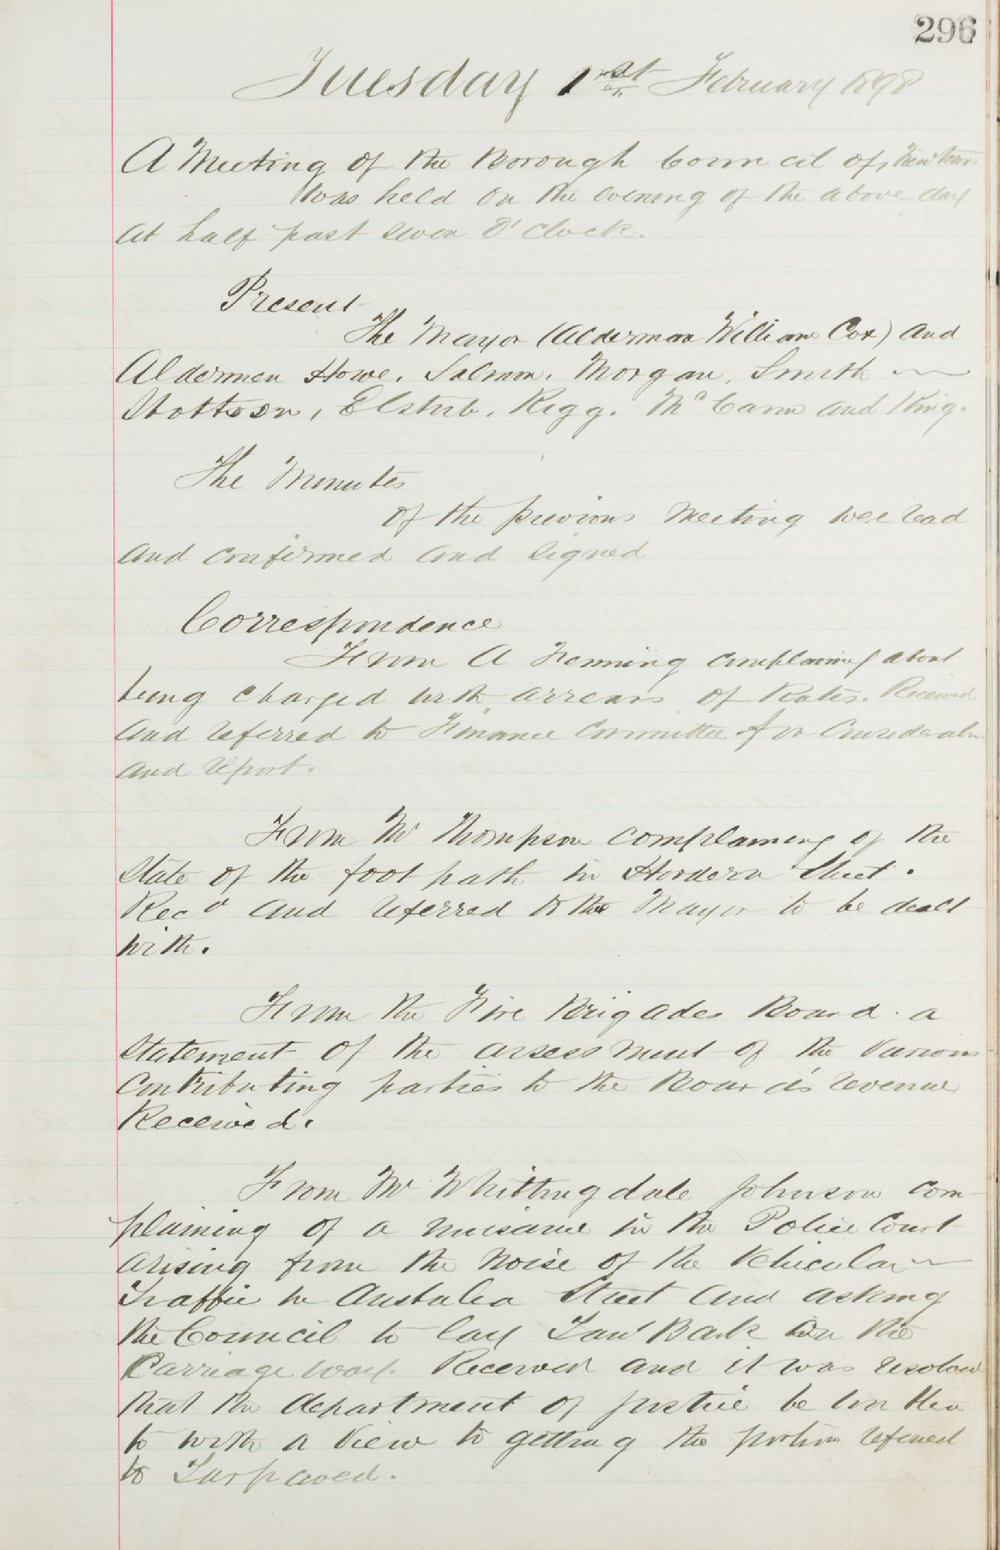 296
Tuesday 1st February 1898
A Meeting of the Borough Council of Newtown
Was held on the evening of the above day
at half past seven O'clock.
Present
The Mayor (Alderman William Cox) and
Aldermen Howe, Salmon, Morgan, Smith
Elstub, Rigg, McCann and King.
The Minutes
of the previous Meeting were read
and confirmed and signed
Correspondence
From A Fenning complaining about
being charged with arrears of Rates. Received
and referred to Finance Committee for Consideration
and report.
From Mr Thompson complaining of the
State of the foot path in Hordern Street.
Recd and referred to the Mayor to be dealt
with.
From the Fire Brigades Board a
Statement of the assessment of the various
Contributing parties to the Board's revenue
Received.
From Mr Whittingdale Johnson com-
plaining of a nuisance in the Police Court
arising from the noise of the Vehicular
Traffic in Australia Street and asking
the Council to lay Tan Bark on the
Carriage way. Received and it was resolved
that the department of Justice be written
to with a view to getting the portion referred
to Tarpaved.